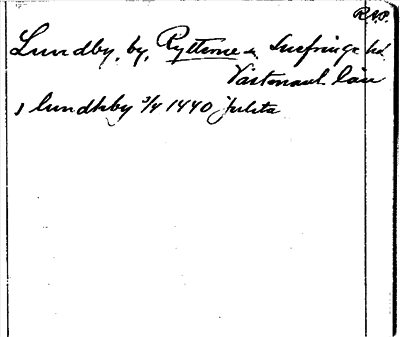 R.A.P.
Lundby, by, Rytterne sn Snefringe hd
Västmanl. län
j lundhby 3/4 1440 Julita